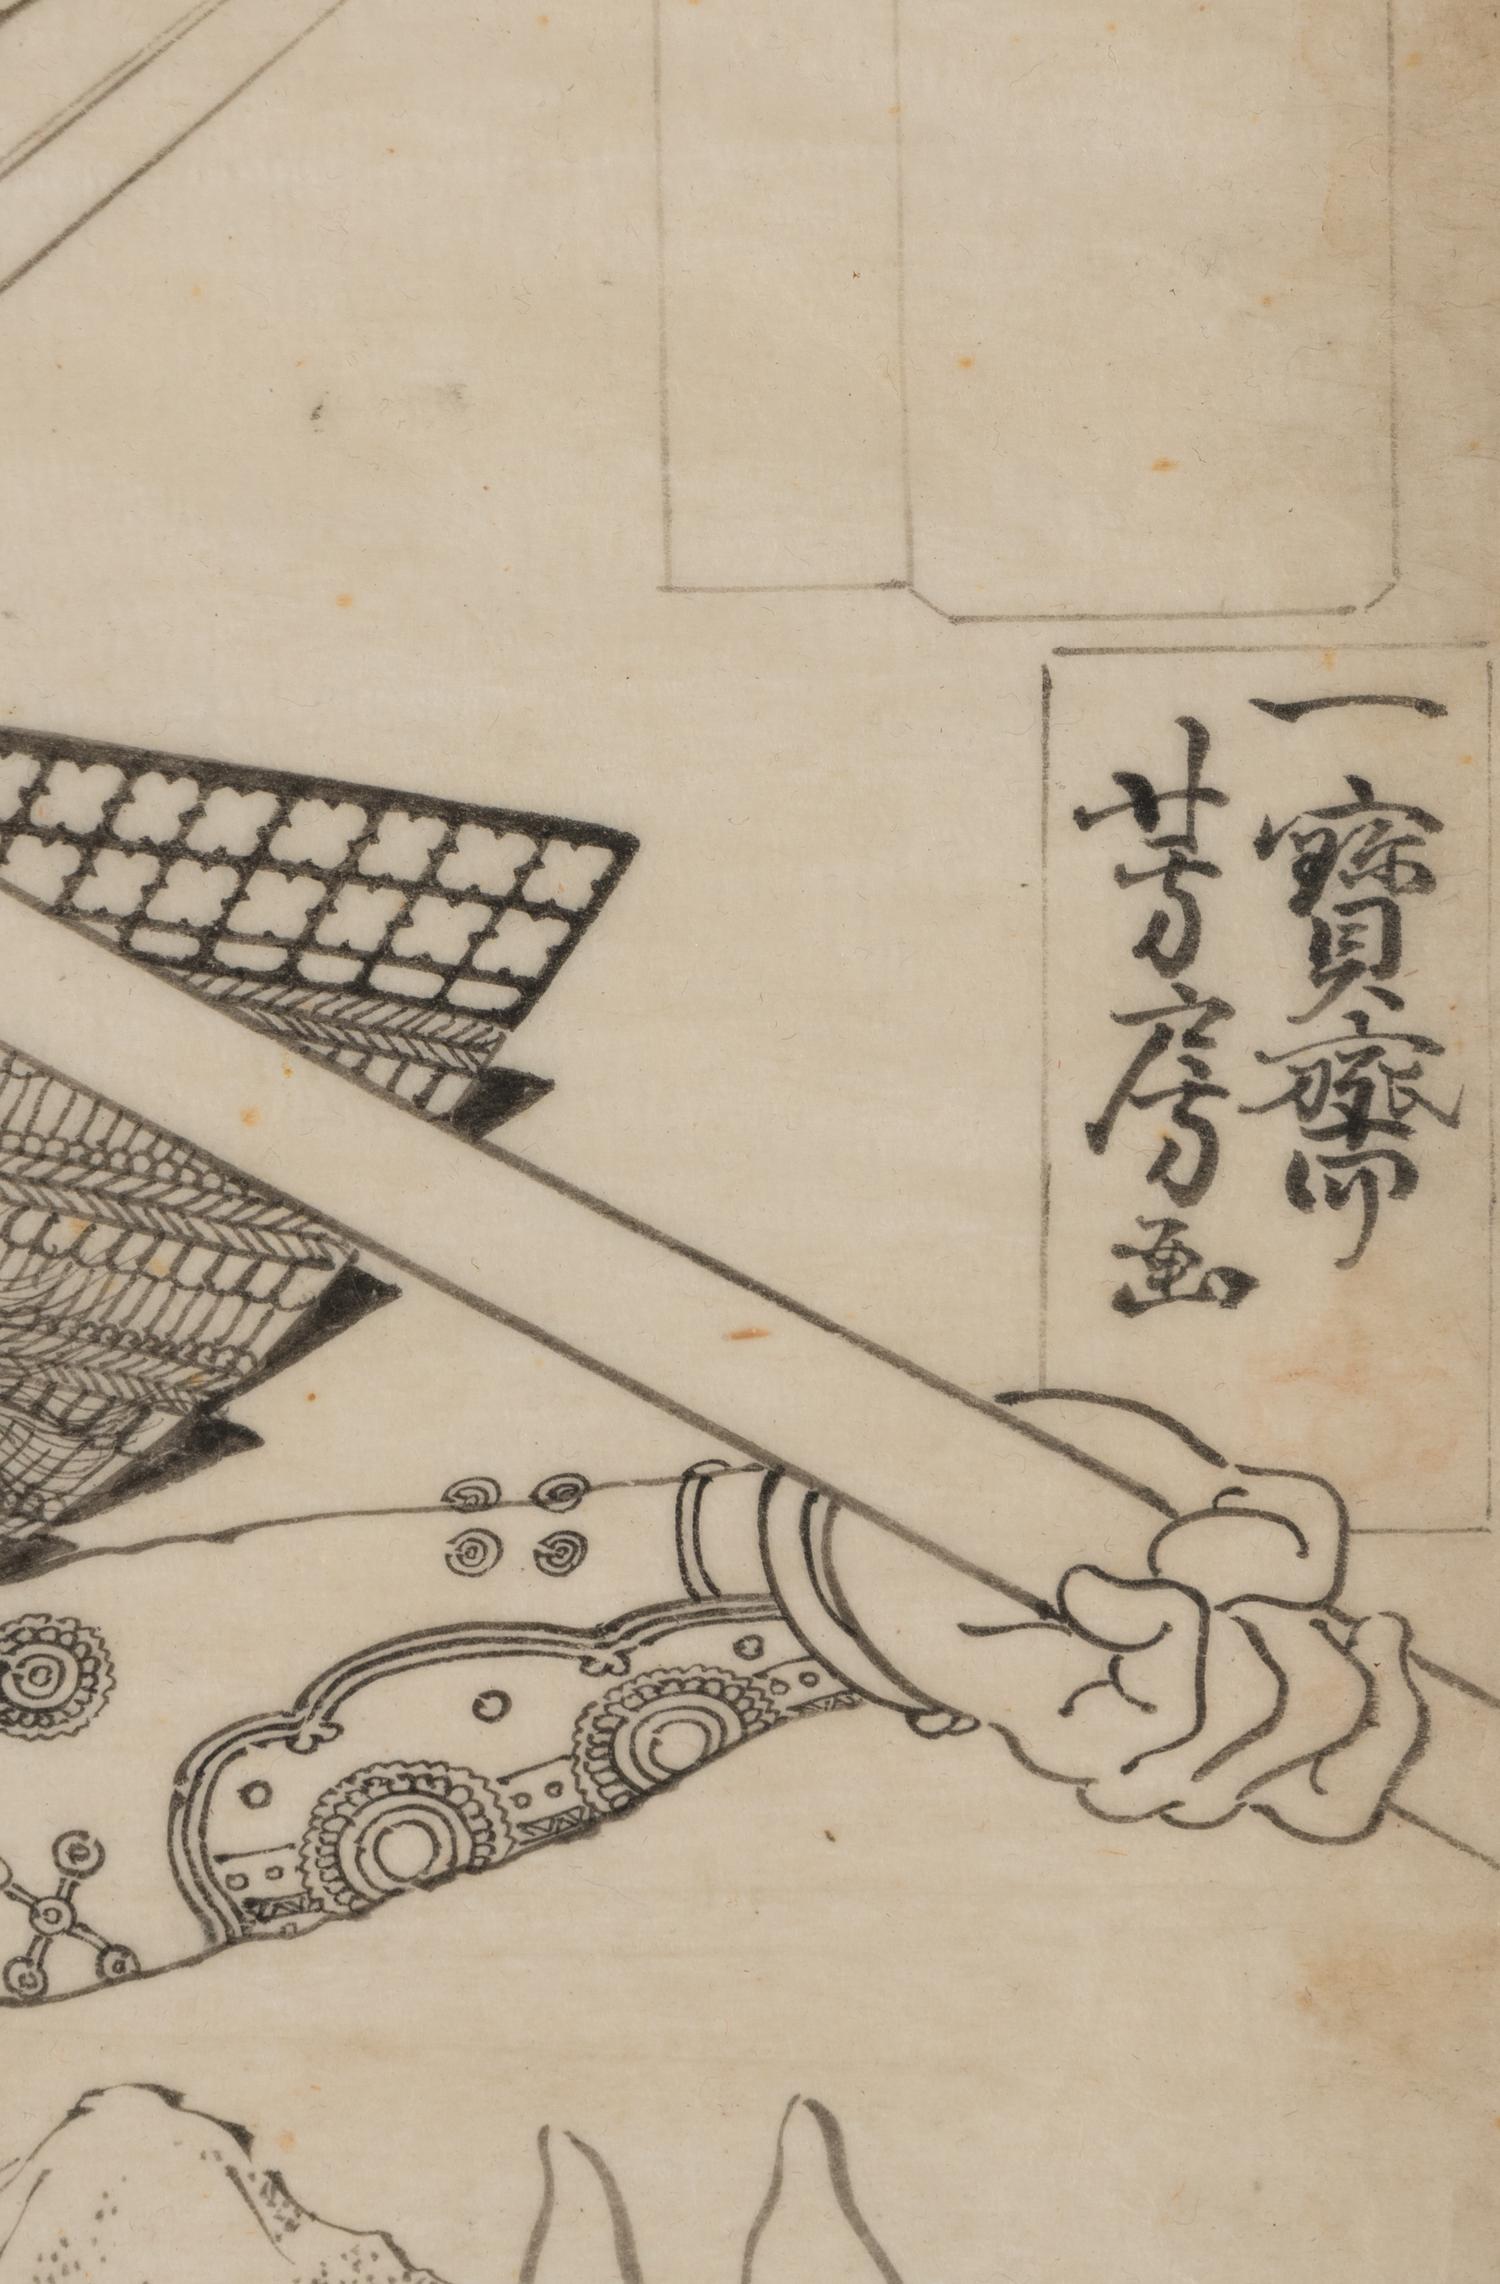 一寳齋
芳房画